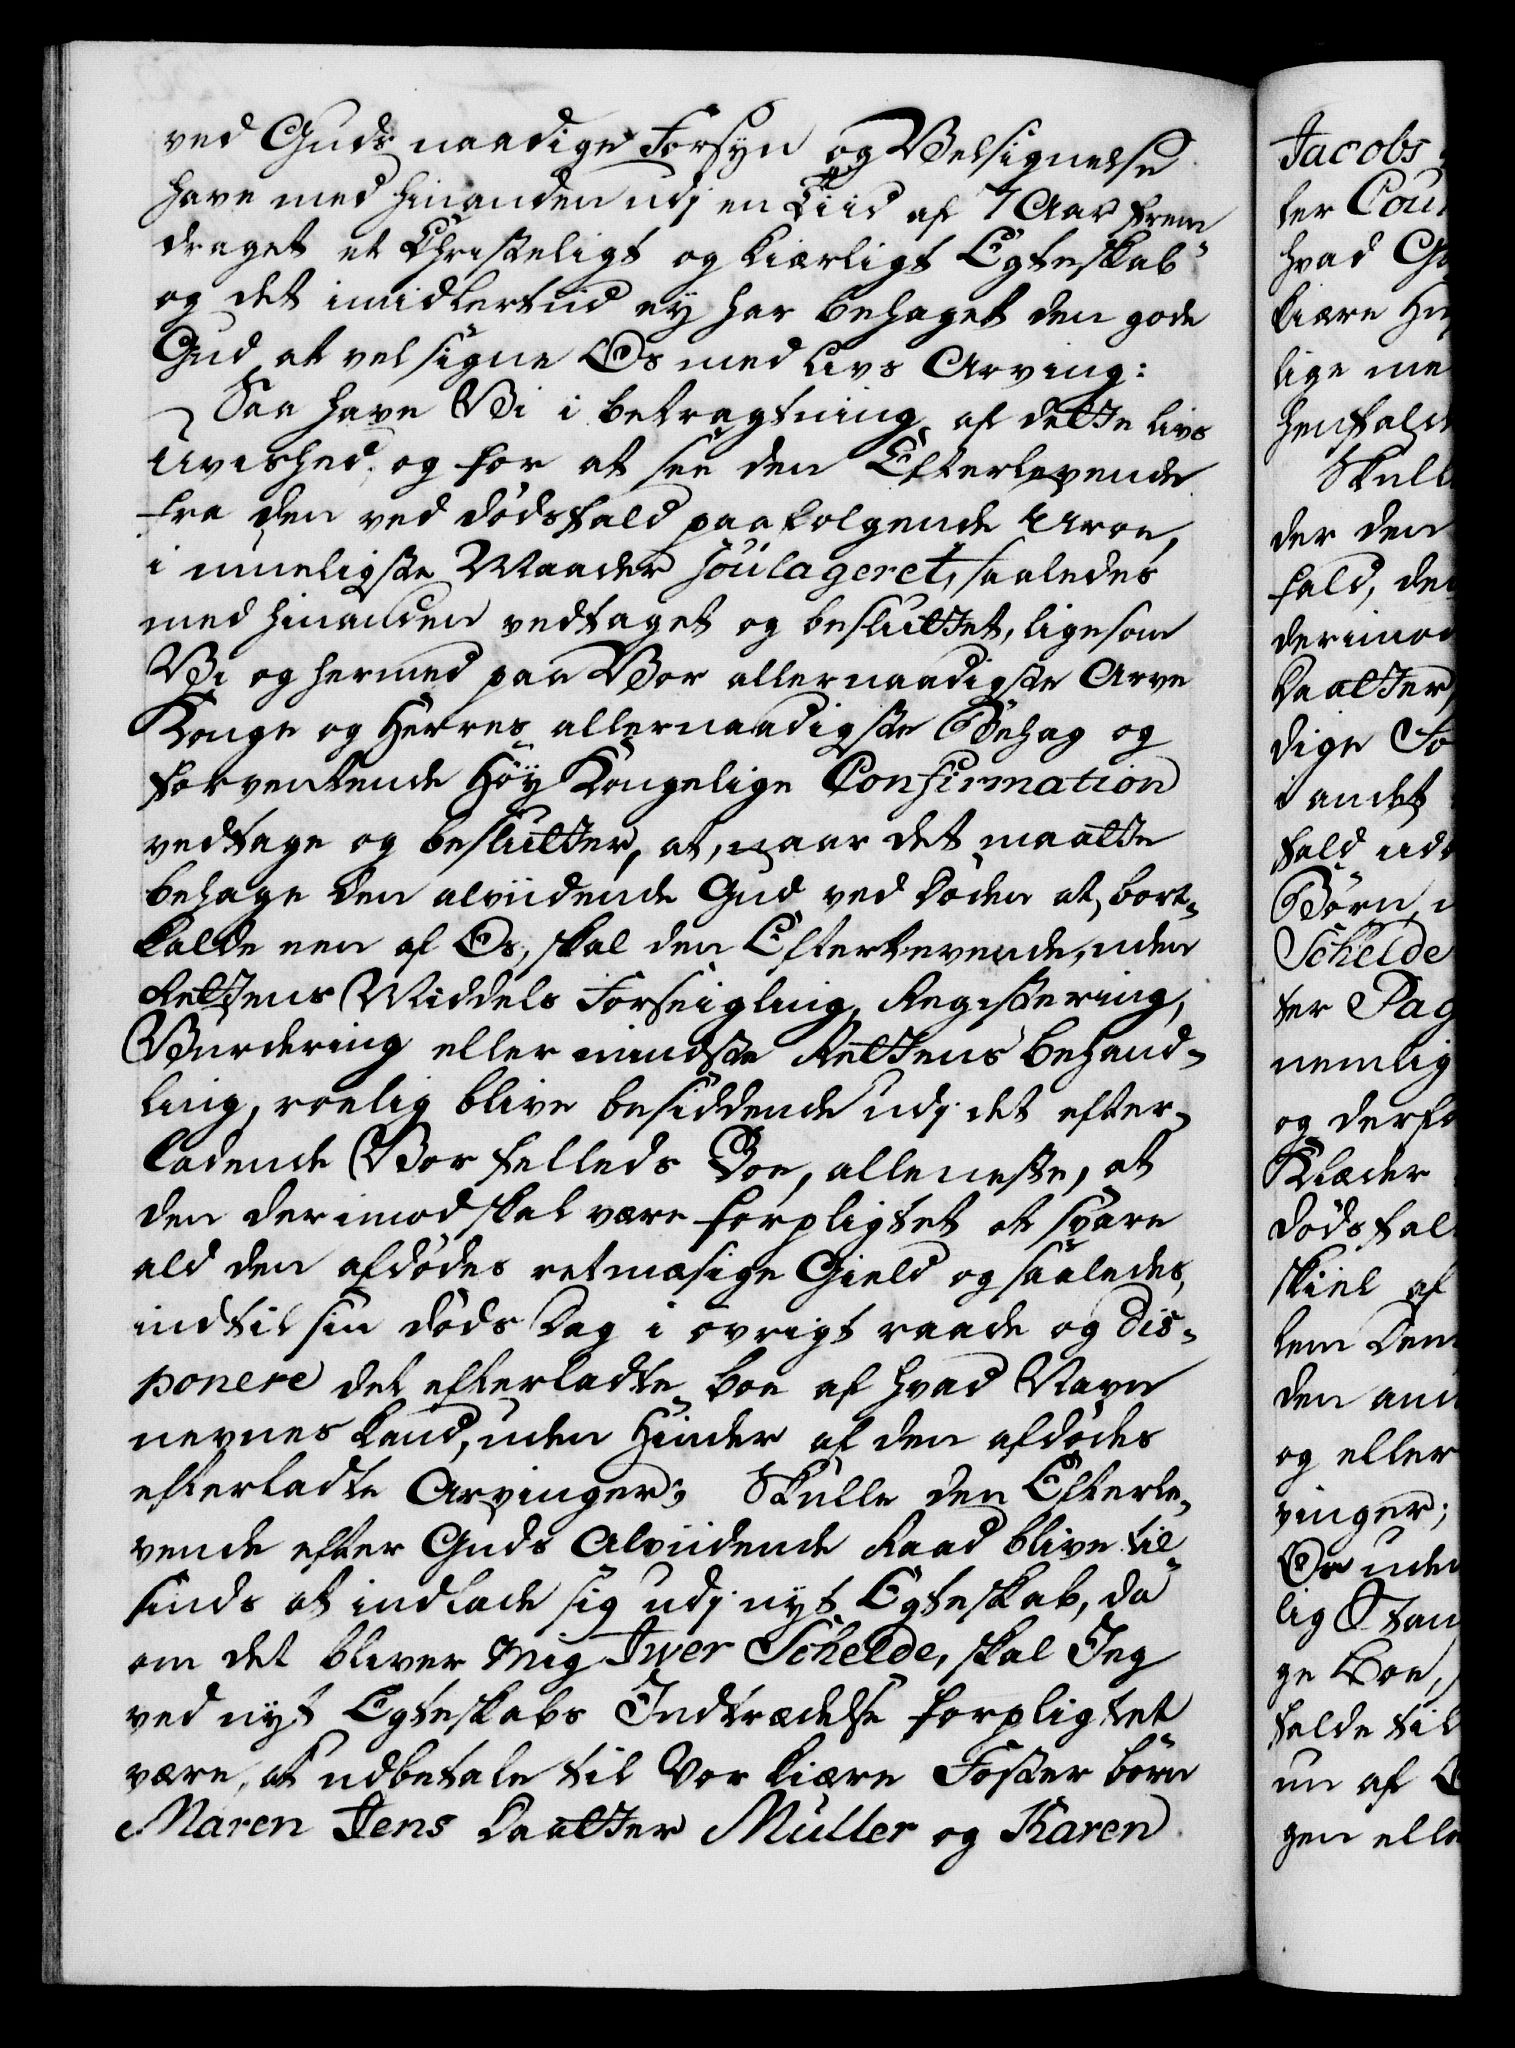 ved Guds naadige Forsyn og Velsignelse
have med hinanden udj en Tiid af 7 Aar frem
draget et Christeligt og kiærligt Egteskab
og det imidlertiid ey har behaget den gode
Gud at velsigne Os med Livs Arving:
Saa have Vi i betragtning af dette livs
Uvished, og for at see den Efterlevende
fra den ved dødsfald paafølgende Uroe,
i mueligste Maader soulageret, saaledes
med hinanden vedtaget og besluttet, ligesom
Vi og hermed paa Vor allernaadigste Arve
Konge og Herres allernaadigste Behag og
forventende Høy Kongelige Confirmation
vedtage og beslutter, at, naar det maatte
behage den alviidende Gud ved døden at bort-
kalde een af Os, skal den Efterlevende, uden
Rettens Middels Forseigling, Registering,
Vurdering eller mindste Rettens behand-
ling, roelig blive besiddende udj det efter-
ladende Vor felleds Boe, alleneste, at
den derimod skal være forpligtet at svare
ald den afdødes retmæsige Gield og saaledes,
indtil sin døds dag i øvrigt raade og dis-
ponere det efterladte boe af hvad Navn
nevnes kand, uden Hinder af den afdødes
efterladte Arvinger; Skulle den Efterle-
vende efter Guds Alviidende Raad blive til
sinds at indlade sig udj nyt Egteskab, da
om det bliver mig Iwer Schelde, skal Jeg
ved nyt Egteskabs Indtrædelse forpligtet
være, at udbetale til Vor kiære Foster børn
Maren Jens daatter Müller og Karen
Jacobs
ter
hvad
kiære
lige
Skull
der den
fald,
daatter
dige
i andet
fald
Børn
Schelde
ter
nemlig
og
Klæder
døds fal
skiel af
den
og eller
vinger;
lig
ge Boe,
falde til
un af
gen